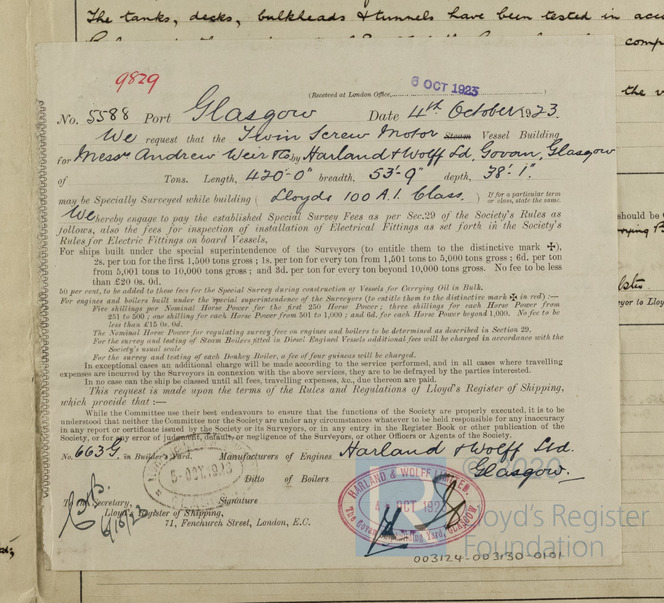 The tanks, decks, bulkheads & tunnels have been tested in
comp
the
9829
(Received at London Office, 6 OCT 1923 )
No. 5588 Port Glasgow Date 4th October 1923.
We request that the Twin Screw Motor Steam Vessel Building
for Messrs Andrew Weir & Co by Harland & Wolff Ld, Govan, Glasgow
of Tons. Length, 420'-0" breadth, 53'-9" depth, 38'-1"
may be Specially Surveyed while building ( Lloyds 100 A.1. Class. ) If for a particular term or class, state the same.
We hereby engage to pay the established Special Survey Fees as per Sec.29 of the Society's Rules as
follows, also the fees for inspection of installation of Electrical Fittings as set forth in the Society's
Rules for Electric Fittings on board Vessels.
For ships built under the special superintendence of the Surveyors (to entitle them to the distinctive mark ✠),
2s. per ton for the first 1,500 tons gross; 1s. per ton for every ton from 1,501 to 5,000 tons gross; 6d. per ton
from 5,001 tons to 10,000 tons gross; and 3d. per ton for every ton beyond 10,000 tons gross. No fee to be less
than £20 0s. 0d.
50 per cent. to be added to these fees for the Special Survey during construction of Vessels for Carrying Oil in Bulk.
For engines and boilers built under the special superintendence of the Surveyors (to entitle them to the distinctive mark ✠ in red):—
Five shillings per Nominal Horse Power for the first 250 Horse Power; three shillings for each Horse Power from
251 to 500; one shilling for each Horse Power from 501 to 1,000; and 6d. for each Horse Power beyond 1,000. No fee to be
less than £15 0s. 0d.
The Nominal Horse Power for regulating survey fees on engines and boilers to be determined as described in Section 29.
For the survey and testing of Steam Boilers fitted in Diesel Engined Vessels additional fees will be charged in accordance with the
Society's usual scale
For the survey and testing of each Donkey Boiler, a fee of four guineas will be charged.
In exceptional cases an additional charge will be made according to the service performed, and in all cases where travelling
expenses are incurred by the Surveyors in connexion with the above services, they are to be defrayed by the parties interested.
In no case can the ship be classed until all fees, travelling expenses, &c., due thereon are paid.
This request is made upon the terms of the Rules and Regulations of Lloyd's Register of Shipping,
which provide that:—
While the Committee use their best endeavours to ensure that the functions of the Society are properly executed, it is to be
understood that neither the Committee nor the Society are under any circumstances whatever to be held responsible for any inaccuracy
in any report or certificate issued by the Society or its Surveyors, or in any entry in the Register Book or other publication of the
Society, or for any error of judgment, default, or negligence of the Surveyors, or other Officers or Agents of the Society.
No. 663G. in Builder's Yard. Manufacturers of Engines Harland & Wolff Ltd.
Ditto of Boilers Glasgow.
5-OCT.1923
HARLAND & WOLFF LIMITED,
4 OCT 1923
The Govan Shipbuilding Yard, GLASGOW
To the Secretary, Signature
Lloyd's Register of Shipping,
71, Fenchurch Street, London, E.C.
6/10/23
Lloyd's Register
Foundation
003124-003130-0101
should be
yor to Lloy